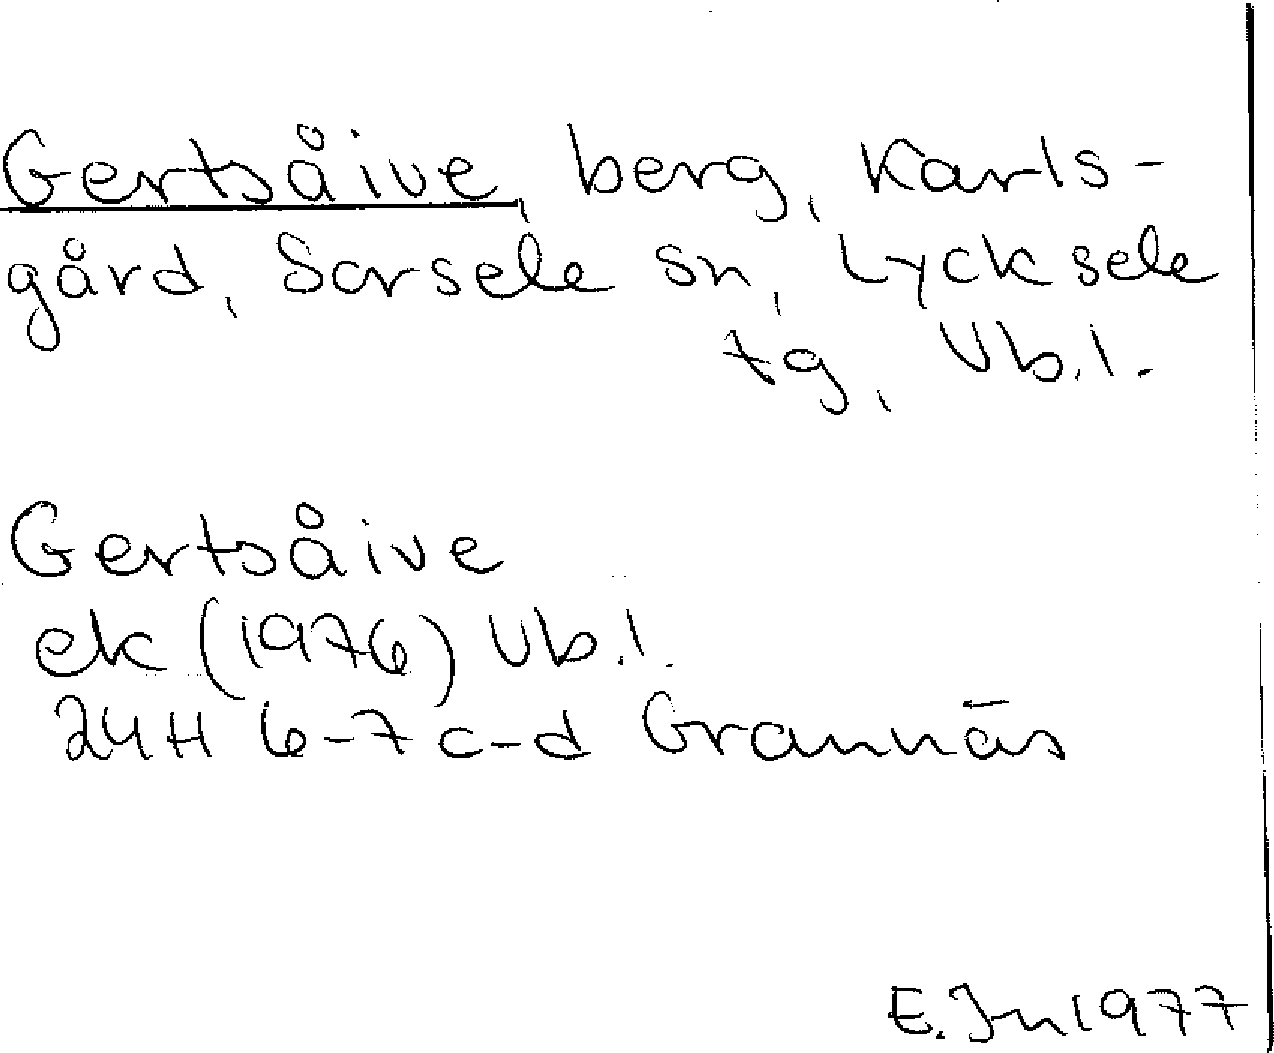 Gertsåive, berg, Karls-
gård, Sorsele sn, Lycksele
tg, Vb.l.
Gertsåive
ek (1976) Vb.l.
24H 6-7 c-d Grannäs
E. Jn 1977